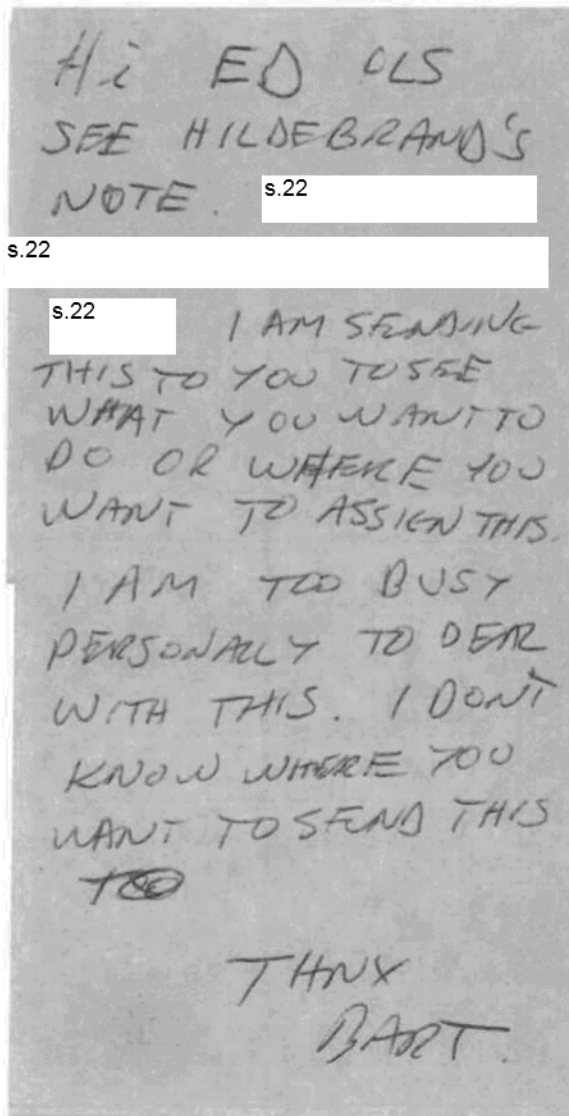 Hi ED OLS
SEE HILDEBRAND'S
NOTE. s.22
s.22
s.22 I AM SENDING
THIS TO YOU TO SEE
WHAT YOU WANT TO
DO OR WHERE YOU
WANT TO ASSIGN THIS.
I AM TOO BUSY
PERSONALLY TO DEAL
WITH THIS. I DON'T
KNOW WHERE YOU
WANT TO SEND THIS
TO
THNX
BART.